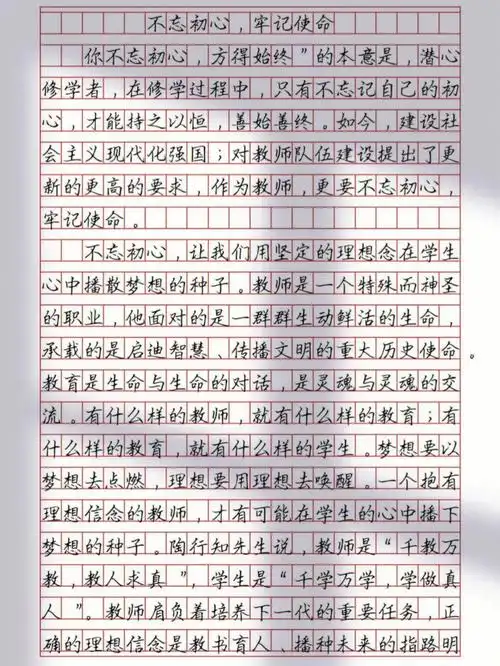 不忘初心，牢记使命
你不忘初心，方得始终”的本意是，潜心
修学者，在修学过程中，只有不忘记自己的初
心，才能持之以恒，善始善终。如今，建设社
会主义现代化强国；对教师队伍建设提出了更
新的更高的要求，作为教师，更要不忘初心，
牢记使命。
不忘初心，让我们用坚定的理想念在学生
心中播散梦想的种子。教师是一个特殊而神圣
的职业，他面对的是一群群生动鲜活的生命，
承载的是启迪智慧、传播文明的重大历史使命。
教育是生命与生命的对话，是灵魂与灵魂的交
流。有什么样的教师，就有什么样的教育；有
什么样的教育，就有什么样的学生。梦想要以
梦想去点燃，理想要用理想去唤醒。一个抱有
理想信念的教师，才有可能在学生的心中播下
梦想的种子。陶行知先生说，教师是“千教万
教，教人求真”，学生是“千学万学，学做真
人”。教师肩负着培养下一代的重要任务，正
确的理想信念是教书育人、播种未来的指路明